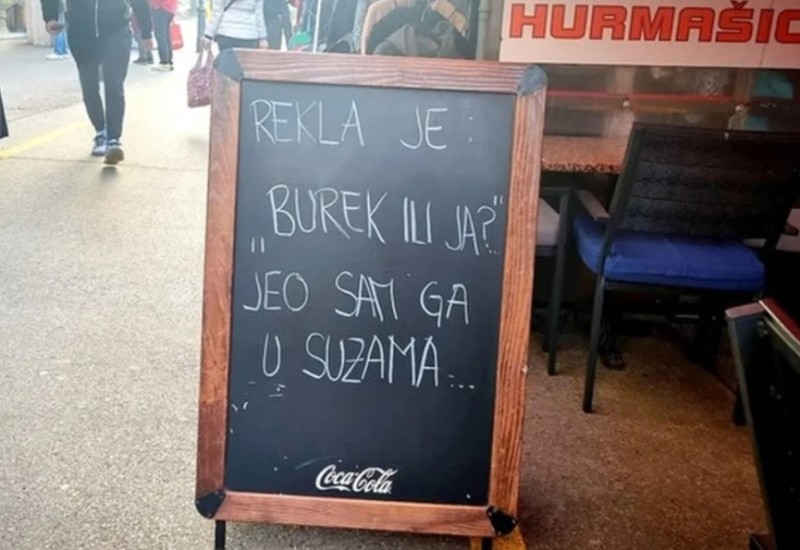 HURMAŠIC
REKLA JE:
„BUREK ILI JA?"
JEO SAM GA
U SUZAMA...
Coca-Cola